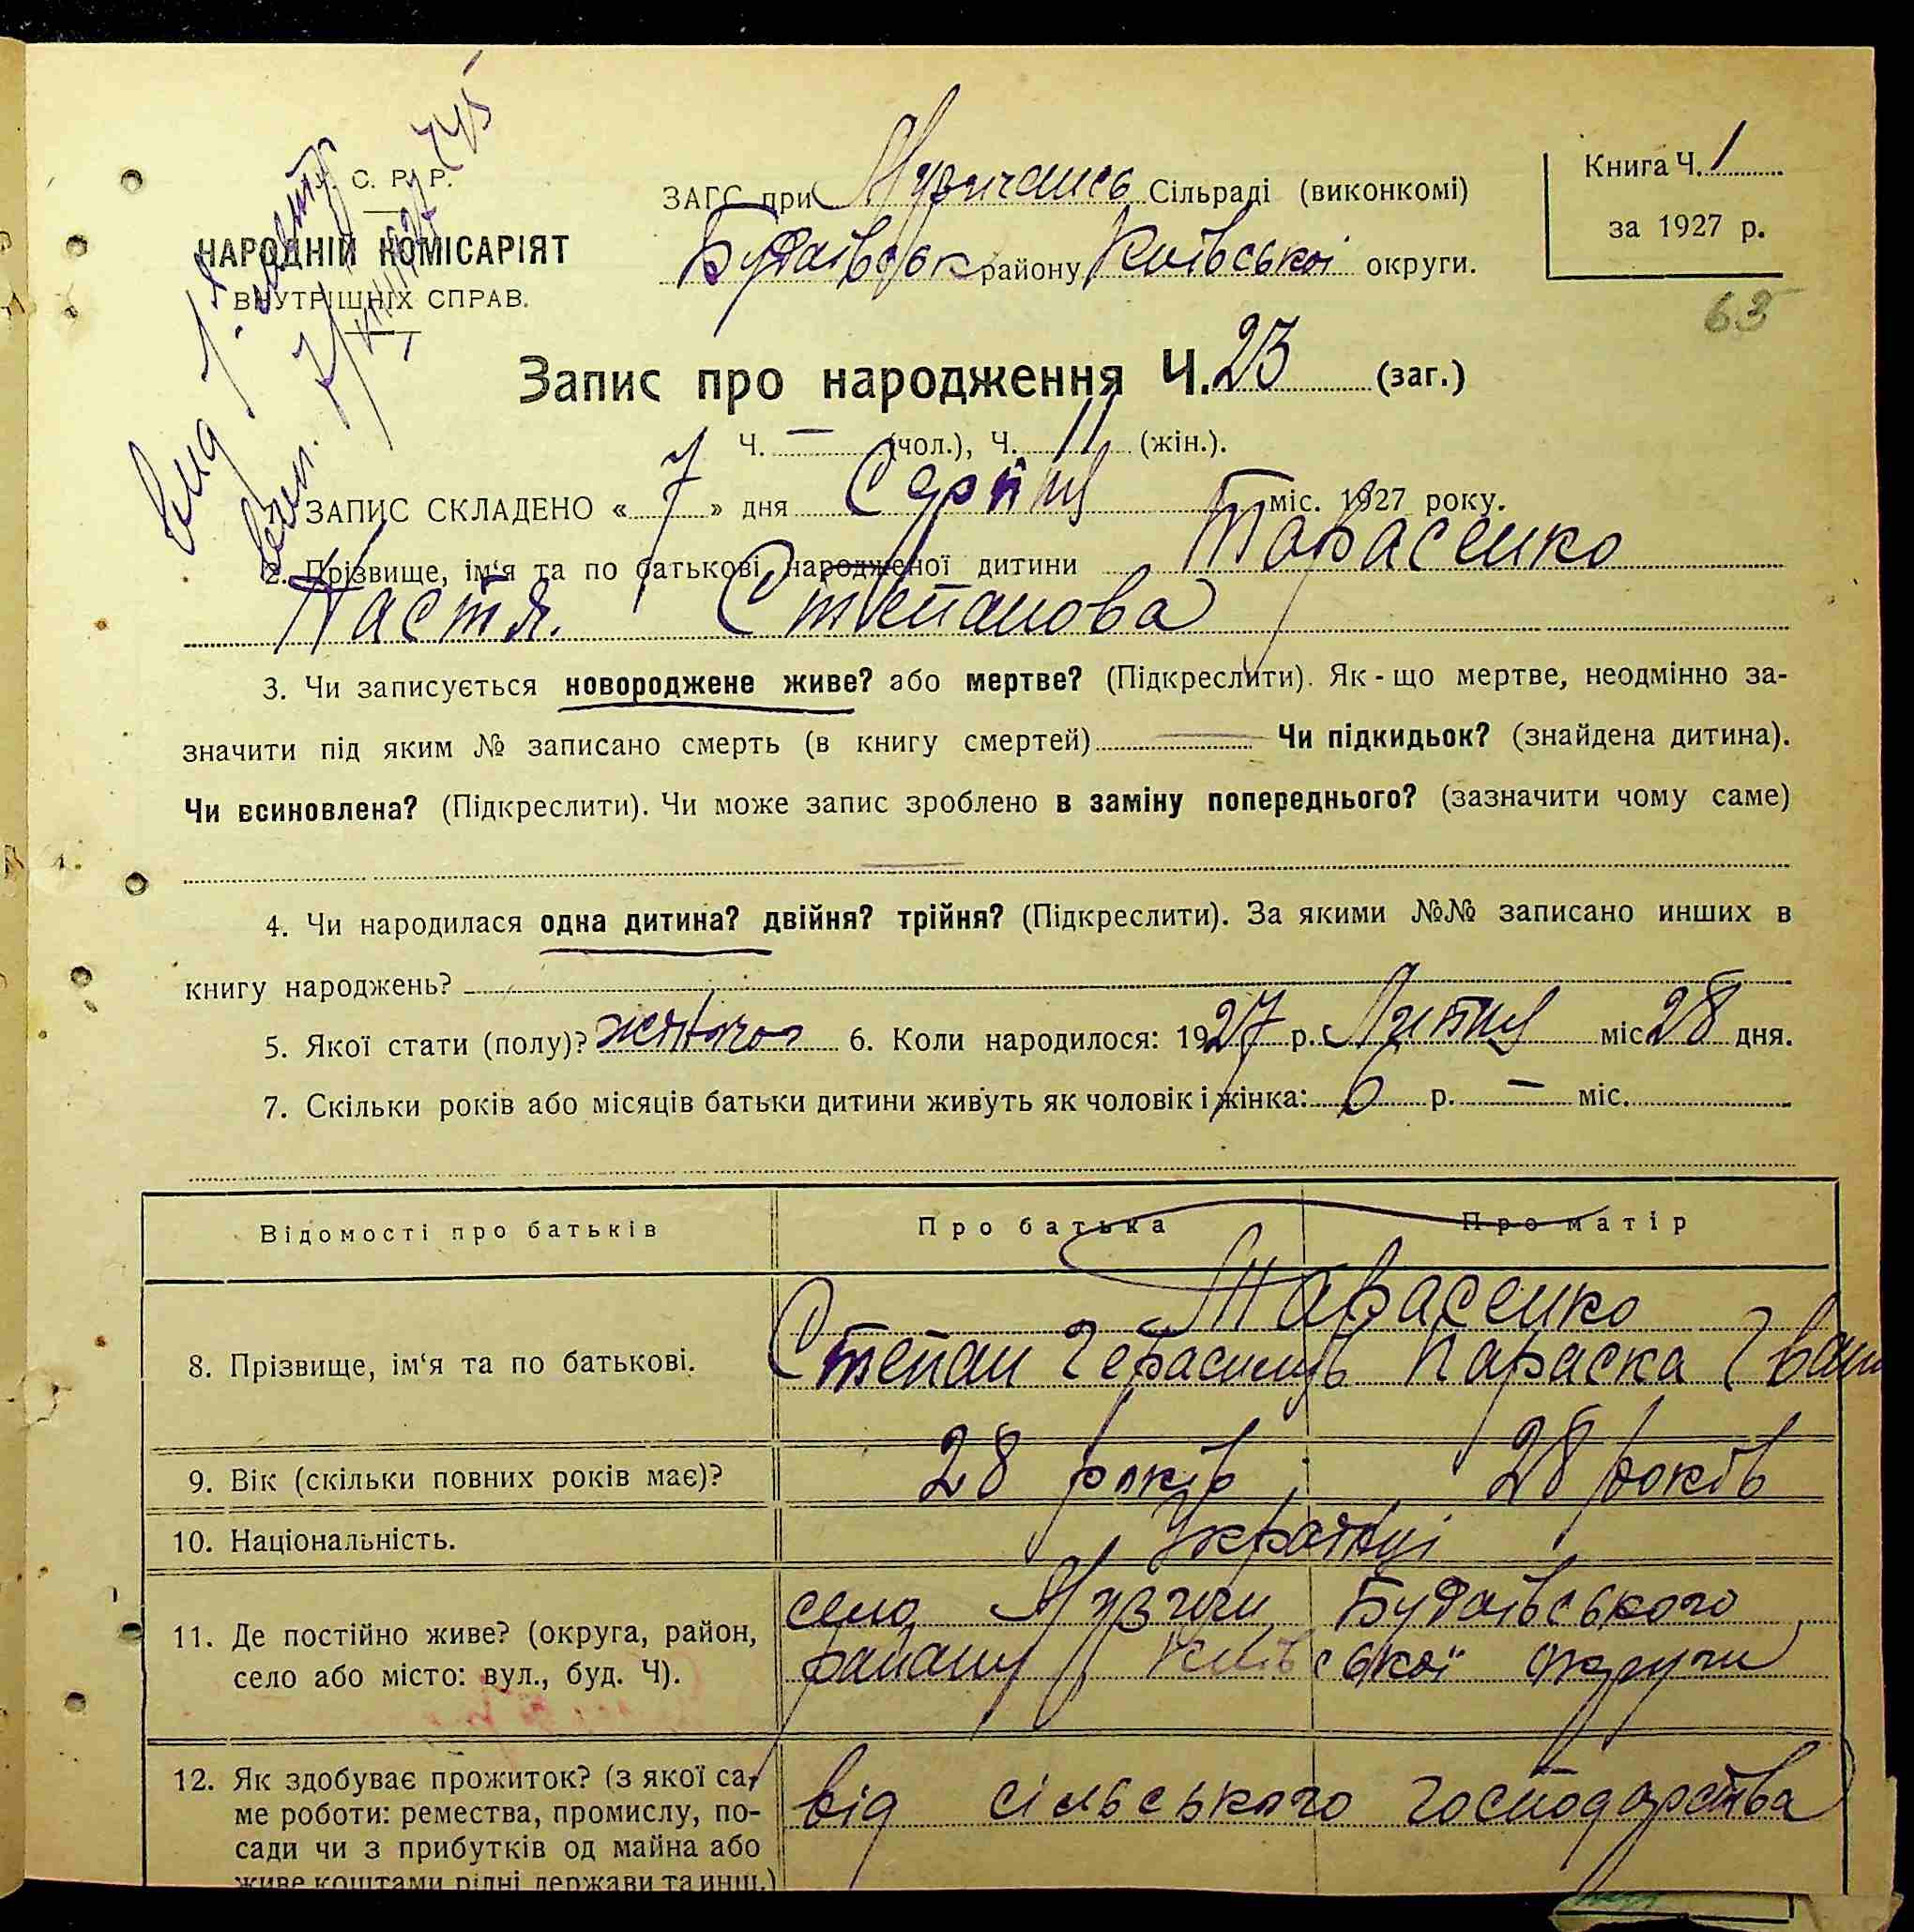 С. Р. Р.
НАРОДНІЙ КОМІСАРІЯТ
ВНУТРІШНІХ СПРАВ.
ЗАГС при Музичансь Сільраді (виконкомі)
Будаївськ району Київської округи.
Книга Ч. 1
за 1927 р.
63
Запис про народження Ч. 23 (заг.)
Ч. — (чол.), Ч. 11 (жін.).
1. ЗАПИС СКЛАДЕНО « 7 » дня Серпня міс. 1927 року.
2. Прізвище, ім‘я та по батькові народженої дитини Тарасенко
Настя. Степанова
3. Чи записується новороджене живе? або мертве? (Підкреслити). Як-що мертве, неодмінно за-
значити під яким № записано смерть (в книгу смертей) — Чи підкидьок? (знайдена дитина).
Чи всиновлена? (Підкреслити). Чи може запис зроблено в заміну попереднього? (зазначити чому саме)
4. Чи народилася одна дитина? двійня? трійня? (Підкреслити). За якими №№ записано инших в
книгу народжень?
5. Якої стати (полу)? жіночої 6. Коли народилося: 1927 р. Липня міс 28 дня.
7. Скільки років або місяців батьки дитини живуть як чоловік і жінка: 6 р. — міс.
Відомості про батьків Про батька Про матір
Тарасенко
8. Прізвище, ім‘я та по батькові. Степан Герасимів Параска Іван
9. Вік (скільки повних років має)? 28 років 28 років
10. Національність. Українці
11. Де постійно живе? (округа, район, село Музичи Будаївського
село або місто: вул., буд. Ч). району Київської округи
12. Як здобуває прожиток? (з якої са-
ме роботи: ремества, промислу, по- від сільського господарства
сади чи з прибутків од майна або
живе коштами рідні держави та инш.)